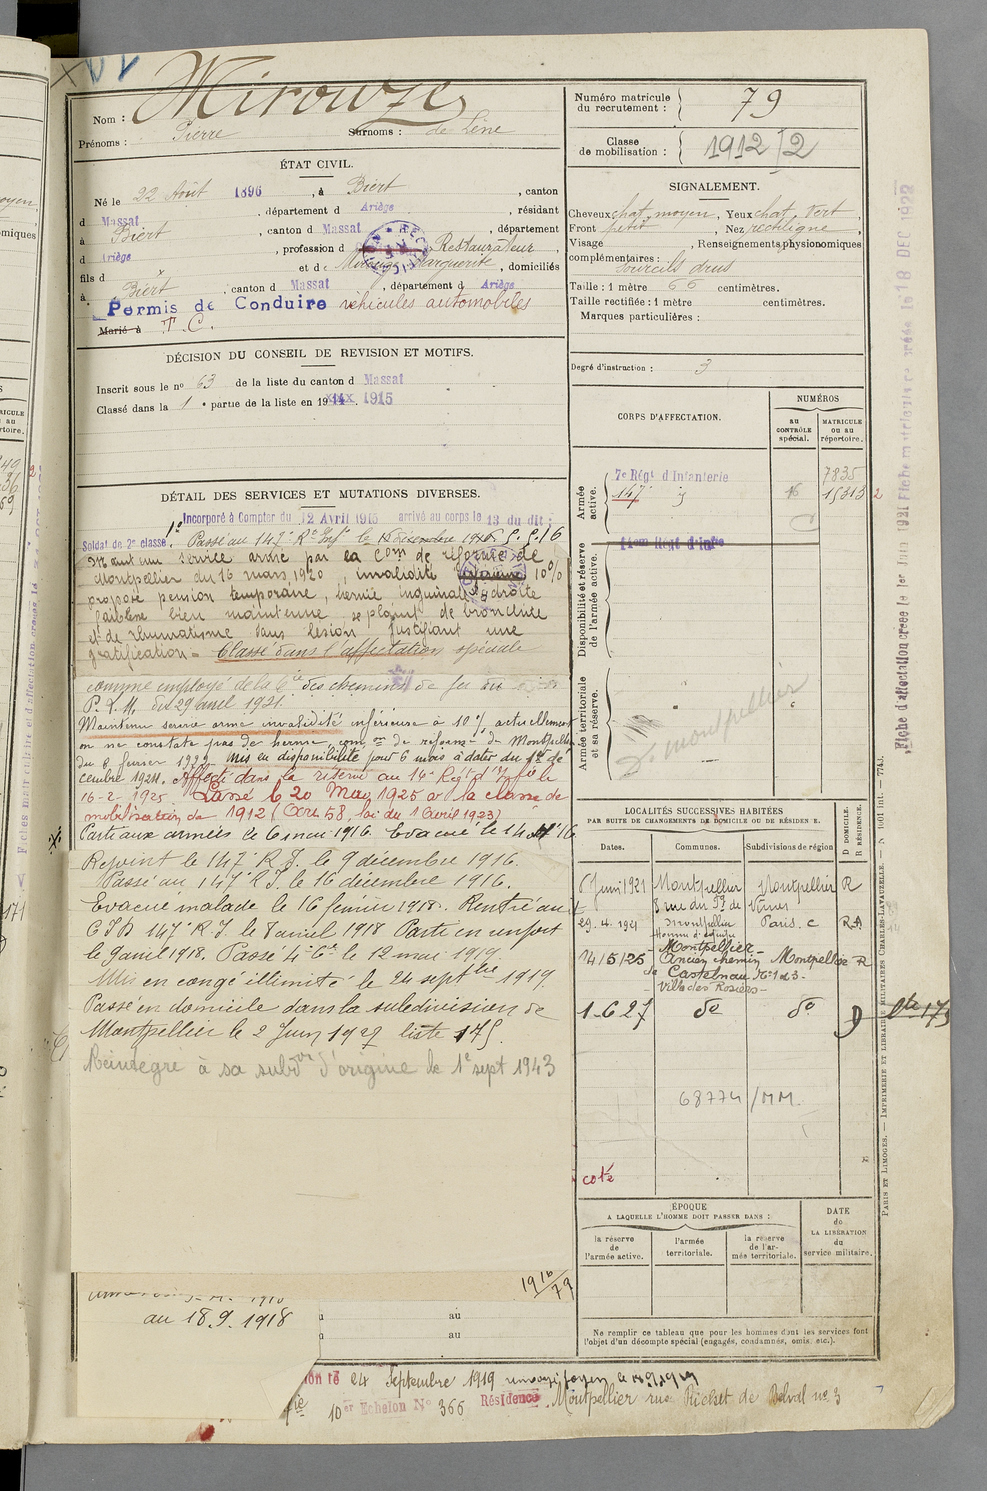 Mirouze
Nom :
Prénoms : Pierre Surnoms : de Lène
ÉTAT CIVIL.
Né le 22 Août 1896, à Biert, canton
d Massat, département d Ariège, résidant
à Biert, canton d Massat, département
d Ariège, profession d Restaurateur,
fils d x et de Mirouze Marguerite, domiciliés
à Biert, canton d Massat, département d Ariège
Permis de Conduire véhicules automobiles
Marié à T. C.
DÉCISION DU CONSEIL DE REVISION ET MOTIFS.
Inscrit sous le no 63 de la liste du canton d Massat
Classé dans la 1e partie de la liste en 1915
DÉTAIL DES SERVICES ET MUTATIONS DIVERSES.
Incorporé à Compter du 12 Avril 1915 arrivé au corps le 13 du dit ;
Soldat de 2e classe. Passé au 147e Rt Inf. le
Maintenu service armé par la Com de réforme de
Montpellier du 16 mars 1920, invalidité 10 %
propose pension temporaire, hernie inguinale droite
faiblesse bien maintenue, se plaint de bronchite
et de rhumatisme sans lésion justifiant une
gratification = Classé dans l'affectation spéciale
comme employé de la Cie des chemins de fer
P. L. M. dit 29 avril 1921.
Maintenu service armé invalidité inférieure à 10 % actuellement
on ne constate pas de hernie com on de réforme de Montpellier
du 6 fevrier 1922. Mis en disponibilité pour 6 mois à dater du 1er dé
cembre 1921. Affecté dans la réserve au 14e Régt d'Inf ie le
16-2 1925. Passé le 20 Mai 1925 à la classe de
mobilisation de 1912 (Art 58, loi du 1 Avril 1923)
Parti aux armées le 6 mai 1916. Evacué le
Rejoint le 147e R I. le 9 décembre 1916.
Passé au 147e R I. le 16 décembre 1916.
Evacué malade le 16 février 1918. Rentré au
C I D 147e R. I. le 8 avril 1918 Parti en renfort
le 9 avril 1918. Passé 4e Cie le 12 mai 1919.
Mis en congé illimité le 24 septbre 1919.
Passé en domicile dans la subdivision de
Montpellier le 2 Juin 1927 liste 175.
Réintégré à sa subdon d'origine le 1e sept 1943
1916/79
au 18.9.1918 au
à au
24 Septembre 1919
10er Echelon No 366 Résidence Montpellier rue Richet de Belval no 3
Numéro matricule du recrutement : 79
Classe de mobilisation : 1912/2
SIGNALEMENT.
Cheveux chat. moyen, Yeux chat. vert,
Front petit, Nez rectiligne,
Visage , Renseignements physionomiques
complémentaires :
sourcils drus
Taille : 1 mètre 66 centimètres.
Taille rectifiée : 1 mètre centimètres.
Marques particulières :
Degré d'instruction : 3
CORPS D'AFFECTATION.
NUMÉROS
AU CONTRÔLE spécial.
MATRICULE ou au répertoire.
Armée active.
7e Régt d'Infanterie 7835
147e 15313 2
Disponibilité et réserve de l'armée active.
14em Régt d'Infie
Armée territoriale et sa réserve.
Montpellier
LOCALITÉS SUCCESSIVES HABITÉES
PAR SUITE DE CHANGEMENTS DE DOMICILE OU DE RÉSIDENCE.
D DOMICILE.
R RÉSIDENCE.
Dates. Communes. Subdivisions de région
6 Juin 1921 Montpellier Montpellier R
29.4.1921 Montpellier Paris. C R
14/5/25 Montpellier Ancien chemin Montpellier R
de Castelnau No 1 et 3 -
Villa des Rosiers -
1-6 27 do do D
68774/MM.
coté
ÉPOQUE
A LAQUELLE L'HOMME DOIT PASSER DANS :
la réserve de l'armée active.
l'armée territoriale.
la réserve de l'armée territoriale.
DATE de LA LIBÉRATION du service militaire.
Ne remplir ce tableau que pour les hommes dont les services font
l'objet d'un décompte spécial (engagés, condamnés, omis, etc.).
PARIS ET LIMOGES. — IMPRIMERIE ET LIBRAIRIE MILITAIRES CHARLES-LAVAUZELLE. — N 1001 int. — 774J.
Fiche d'affectation créée le 1er Juin 1921 Fiche matriculaire créée le 18 DEC 1922